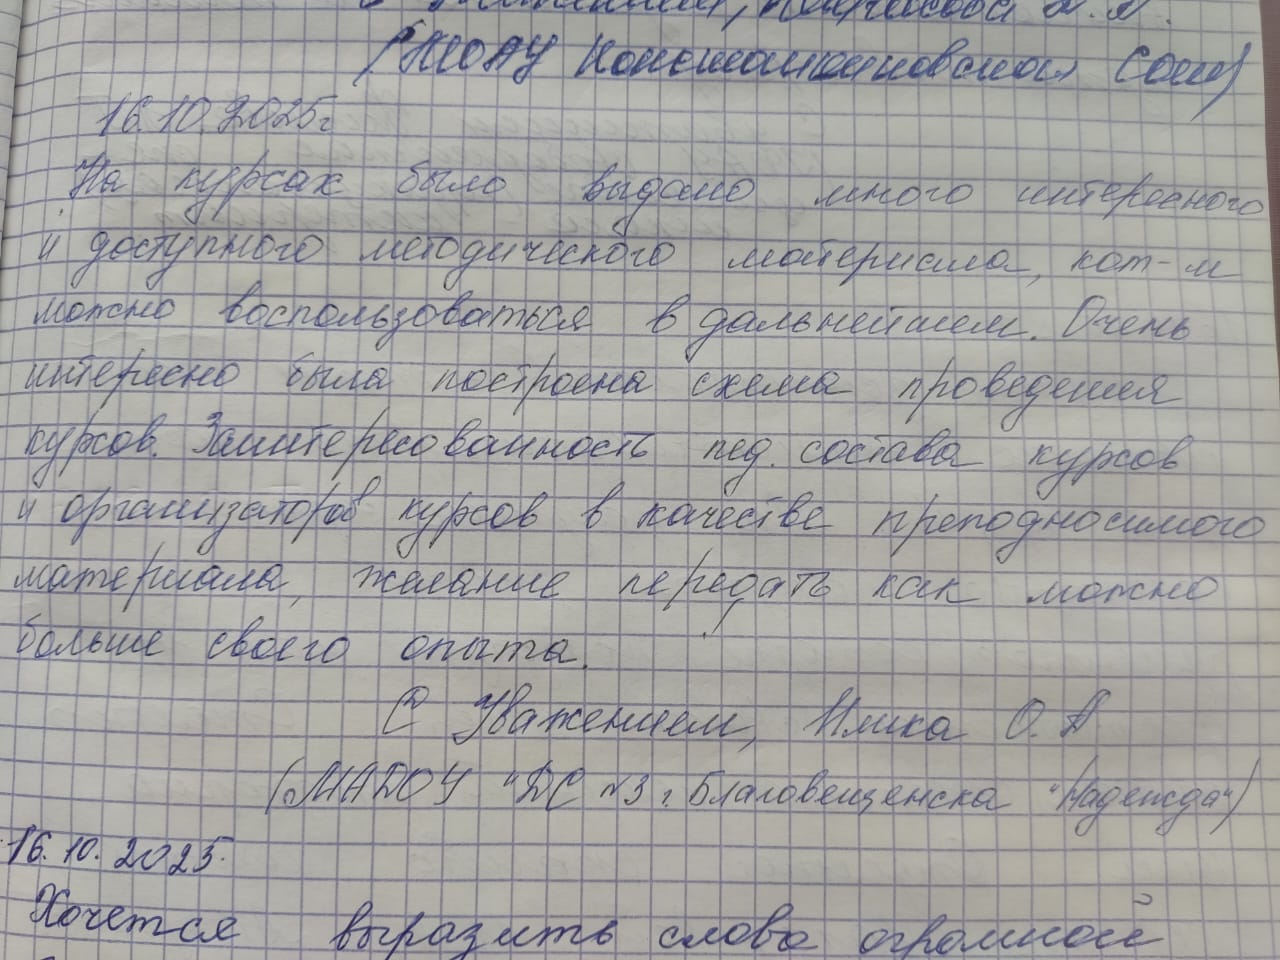 (МОАУ Константиновская СОШ)
16.10.2025г
На курсах было выдано много интересного
и доступного методического материала, кот-м
можно воспользоваться в дальнейшем. Очень
интересно была построена схема проведения
курсов. Заинтересованность пед. состава курсов
и организаторов курсов в качестве преподносимого
материала, желание передать как можно
больше своего опыта.
С Уважением, О.А
(МАДОУ "ДС №3 г. Благовещенска "Надежда")
16.10.2025.
Хочется выразить слова огромной